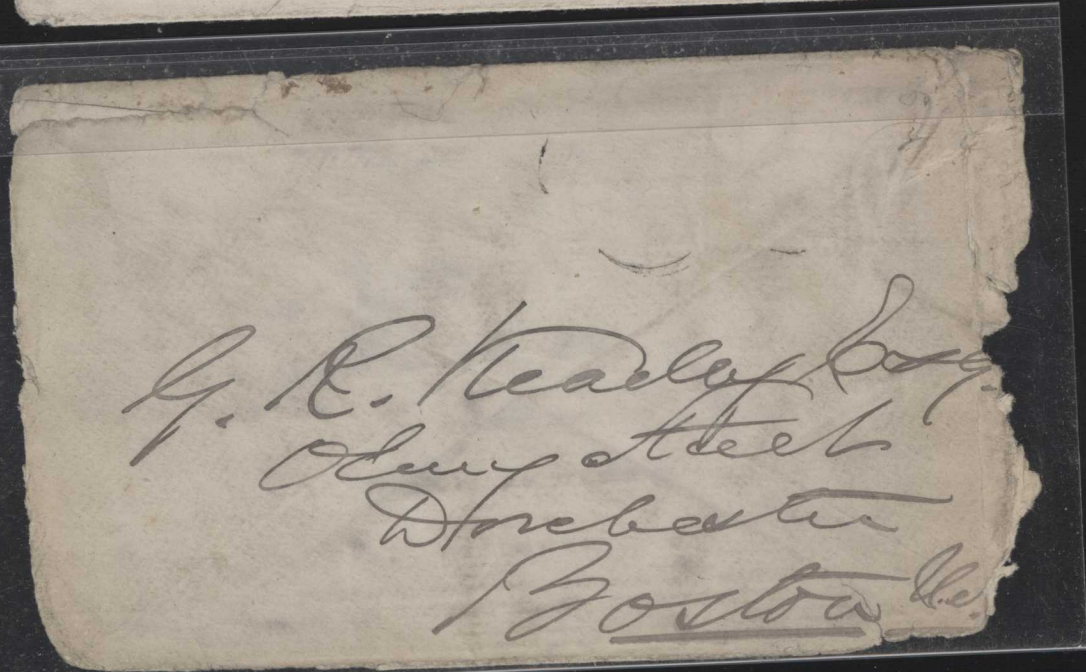 G. R. Headley Esq.
Olney Street
Dorchester
Boston